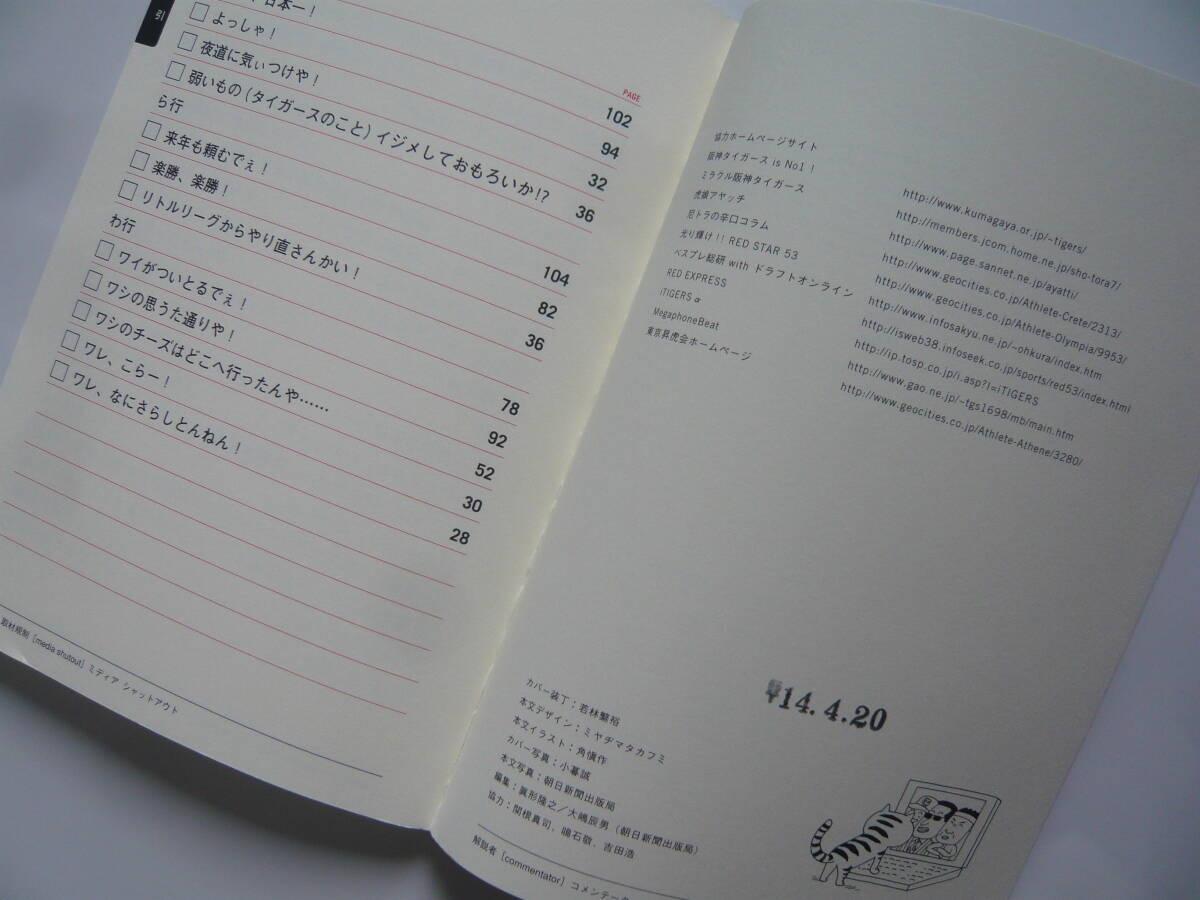 引
日本一！ 102
よっしゃ！ 94
夜道に気ぃつけや！ 32
弱いもの(タイガースのこと)イジメしておもろいか!? 36
ら行
来年も頼むでぇ！ 104
楽勝、楽勝！ 82
リトルリーグからやり直さんかい！ 36
わ行
ワイがついとるでぇ！ 78
ワシの思うた通りや！ 92
ワシのチーズはどこへ行ったんや…… 52
ワレ、こらー！ 30
ワレ、なにさらしとんねん！ 28
PAGE
取材規制［media shutout］ミディア シャットアウト
協力ホームページサイト
阪神タイガース is No1！ http://www.kumagaya.or.jp/~tigers/
ミラクル阪神タイガース http://members.jcom.home.ne.jp/sho-tora7/
虎娘アヤッチ http://www.page.sannet.ne.jp/ayatti/
尼トラの辛口コラム http://www.geocities.co.jp/Athlete-Crete/2313/
光り輝け!! RED STAR 53 http://www.geocities.co.jp/Athlete-Olympia/9953/
ベスプレ総研 with ドラフトオンライン http://www.infosakyu.ne.jp/~ohkura/index.htm
RED EXPRESS http://isweb38.infoseek.co.jp/sports/red53/index.html
iTIGERS α http://ip.tosp.co.jp/i.asp?I=iTIGERS
MegaphoneBeat http://www.gao.ne.jp/~tgs1698/mb/main.htm
東京昇虎会ホームページ http://www.geocities.co.jp/Athlete-Athene/3280/
14.4.20
カバー装丁；若林繁裕
本文デザイン；ミヤヂマタカフミ
本文イラスト；角愼作
カバー写真；小暮誠
本文写真；朝日新聞出版局
編集；眞形隆之／大嶋辰男（朝日新聞出版局）
協力；関根真司、碓石徹、吉田浩
解説者［commentator］コメンテータ